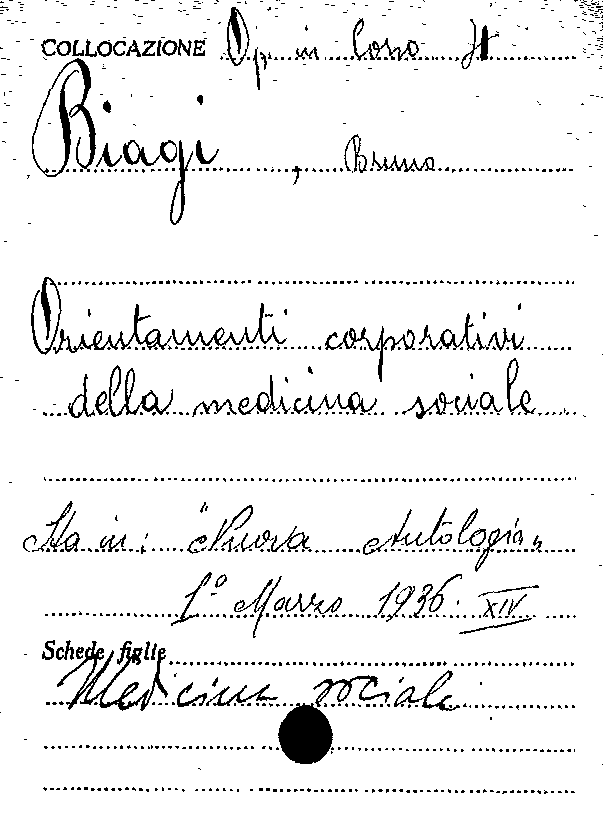 COLLOCAZIONE Op. in Corso It
Biagi, Bruno
Orientamenti corporativi
della medicina sociale
Sta in: "Nuova Antologia"
1º Marzo 1936. XIV
Schede figlie
Medicina sociale